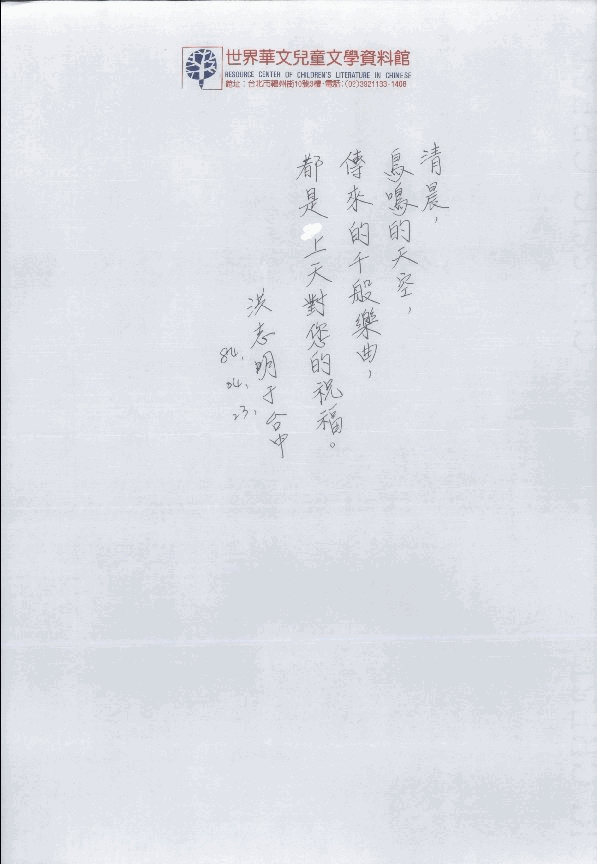 世界華文兒童文學資料館
RESOURCE CENTER OF CHILDREN'S LITERATURE IN CHINESE
館址：台北市福州街10號3樓·電話：(02)3921133·1406
清晨，
鳥鳴的天空，
傳來的千般樂曲，
都是上天對您的祝福。
洪志明于台中
84.
04.
23.